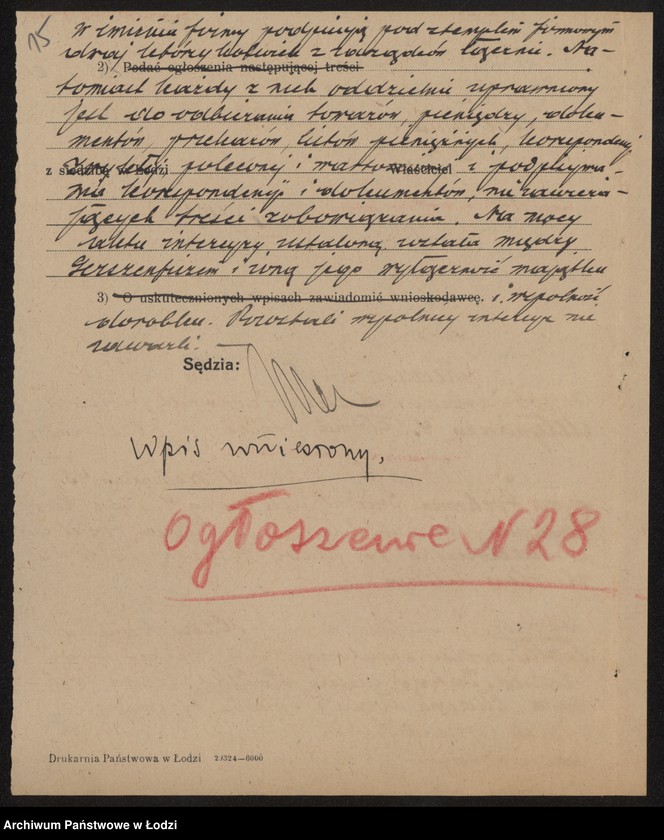 15
w imieniu firmy podpisują pod stemplem firmowym
dwaj którzykolwiek z zarządców łącznie. Na-
2) Podać ogłoszenia następującej treści
tomiast każdy z nich oddzielnie uprawniony
jest do odbierania towarów, pieniędzy, doku-
mentów, przekazów, listów pieniężnych, korespondencji
z siedzibą w Łodzi Właściciel
zwykłej, poleconej i wartościowej i podpisywa-
nia korespondencji i dokumentów, nie zawiera-
jących treści zobowiązania. Na mocy
aktu intercyzy ustaloną została między
i żoną jego wyłączność majątku
3) O uskutecznionych wpisach zawiadomić wnioskodawcę. i wspólność
dorobku. Pozostali wspólnicy intercyz nie
zawarli.
Sędzia:
Wpis wniesiony.
Ogłoszenie N 28
Drukarnia Państwowa w Łodzi 29324—6000
Archiwum Państwowe w Łodzi